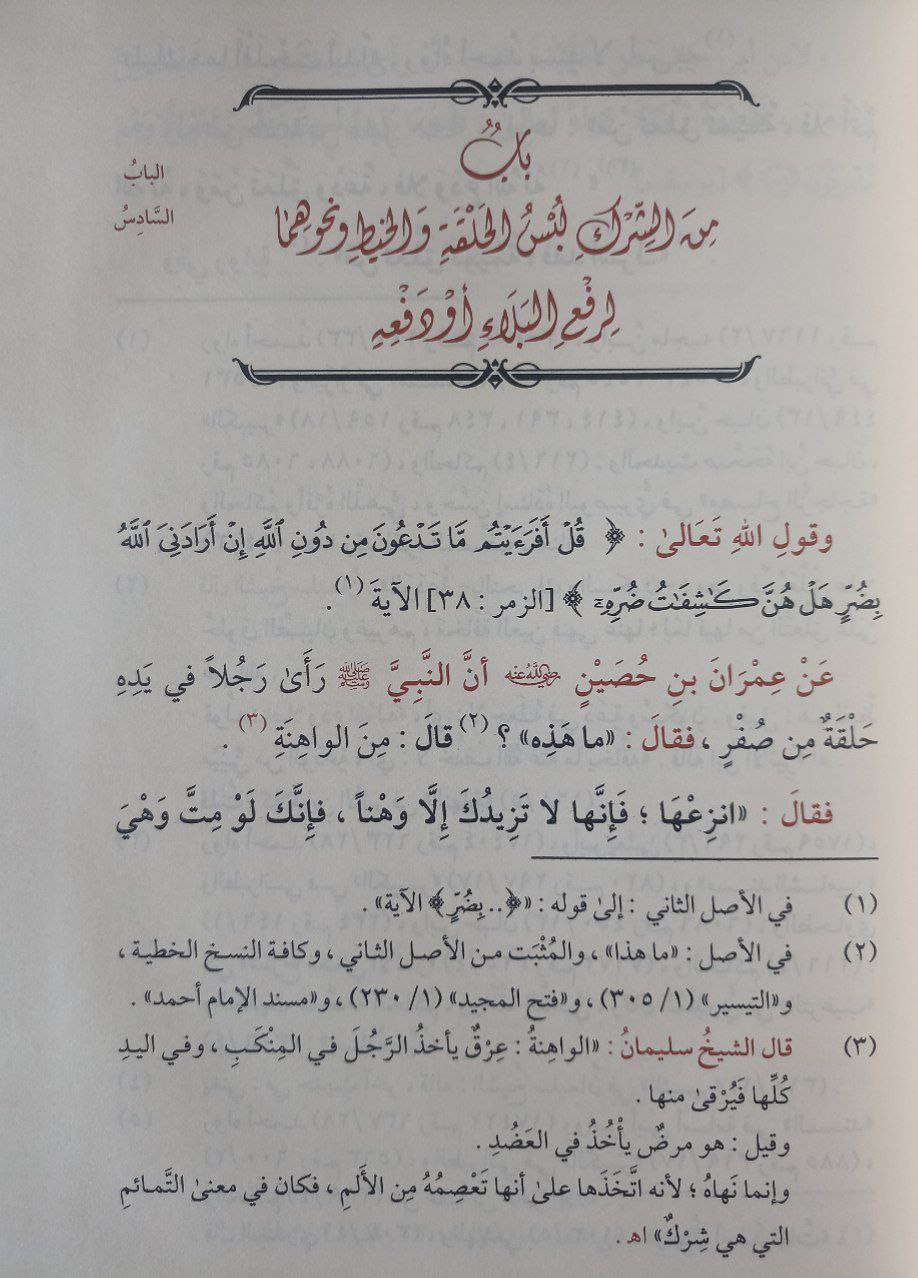 بابٌ
البابُ
السَّادِسُ
مِنَ الشِّرْكِ لُبْسُ الحَلْقَةِ وَالخَيْطِ وَنحوِهِمَا
لِرَفْعِ البَلَاءِ أَوْ دَفْعِهِ
وقولِ اللهِ تَعَالىٰ : ﴿ قُلْ أَفَرَءَيْتُم مَّا تَدْعُونَ مِن دُونِ ٱللَّهِ إِنْ أَرَادَنِيَ ٱللَّهُ
بِضُرٍّ هَلْ هُنَّ كَٰشِفَٰتُ ضُرِّهِۦٓ ﴾ [الزمر : ٣٨] الآيةَ (١) .
عَنْ عِمْرَانَ بنِ حُصَيْنٍ رضي الله عنه أنَّ النَّبِيَّ ﷺ رَأَىٰ رَجُلاً في يَدِهِ
حَلْقَةٌ مِن صُفْرٍ ، فقالَ : «ما هَذِه» ؟ (٢) قالَ : مِنَ الواهِنَةِ (٣) .
فقالَ : «انزِعْهَا ؛ فَإِنَّها لا تَزِيدُكَ إِلَّا وَهْناً ، فإِنَّكَ لَوْ مِتَّ وَهْيَ
(١) في الأصل الثاني : إلىٰ قوله : «﴿.. بِضُرٍّ﴾ الآية» .
(٢) في الأصل : «ما هذا» ، والمُثْبَت من الأصل الثاني ، وكافة النسخ الخطية ،
و«التيسير» (١/ ٣٠٥) ، و«فتح المجيد» (١/ ٢٣٠) ، و«مسند الإمام أحمد» .
(٣) قال الشيخُ سليمانُ : «الواهِنةُ : عِرْقٌ يأخذُ الرَّجُلَ في المِنْكَبِ ، وفي اليدِ
كُلِّها فَيُرْقىٰ منها .
وقيل : هو مرضٌ يأْخُذُ في العَضُدِ .
وإنما نَهاهُ ؛ لأنه اتَّخَذَها علىٰ أنها تَعْصِمُهُ مِن الأَلَمِ ، فكان في معنىٰ التَّمائمِ
التي هي شِرْكٌ» اهـ .